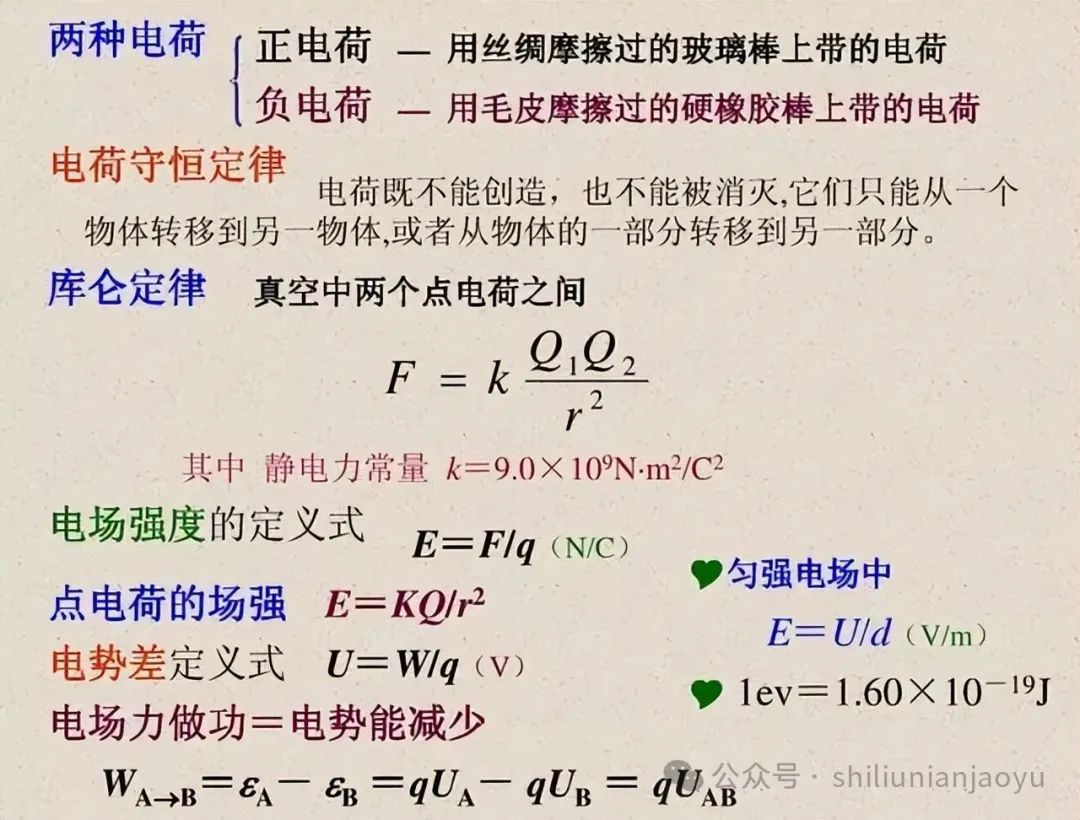 两种电荷
正电荷 — 用丝绸摩擦过的玻璃棒上带的电荷
负电荷 — 用毛皮摩擦过的硬橡胶棒上带的电荷
电荷守恒定律
电荷既不能创造，也不能被消灭,它们只能从一个
物体转移到另一物体,或者从物体的一部分转移到另一部分。
库仑定律 真空中两个点电荷之间
F = k Q₁Q₂ / r²
其中 静电力常量 k＝9.0×10⁹N·m²/C²
电场强度的定义式 E＝F/q（N/C）
点电荷的场强 E＝KQ/r²
电势差定义式 U＝W/q（V）
匀强电场中
E＝U/d（V/m）
1ev＝1.60×10⁻¹⁹J
电场力做功＝电势能减少
W_A→B＝ε_A－ ε_B ＝qU_A－ qU_B ＝ qU_AB
公众号 · shiliunianjaoyu